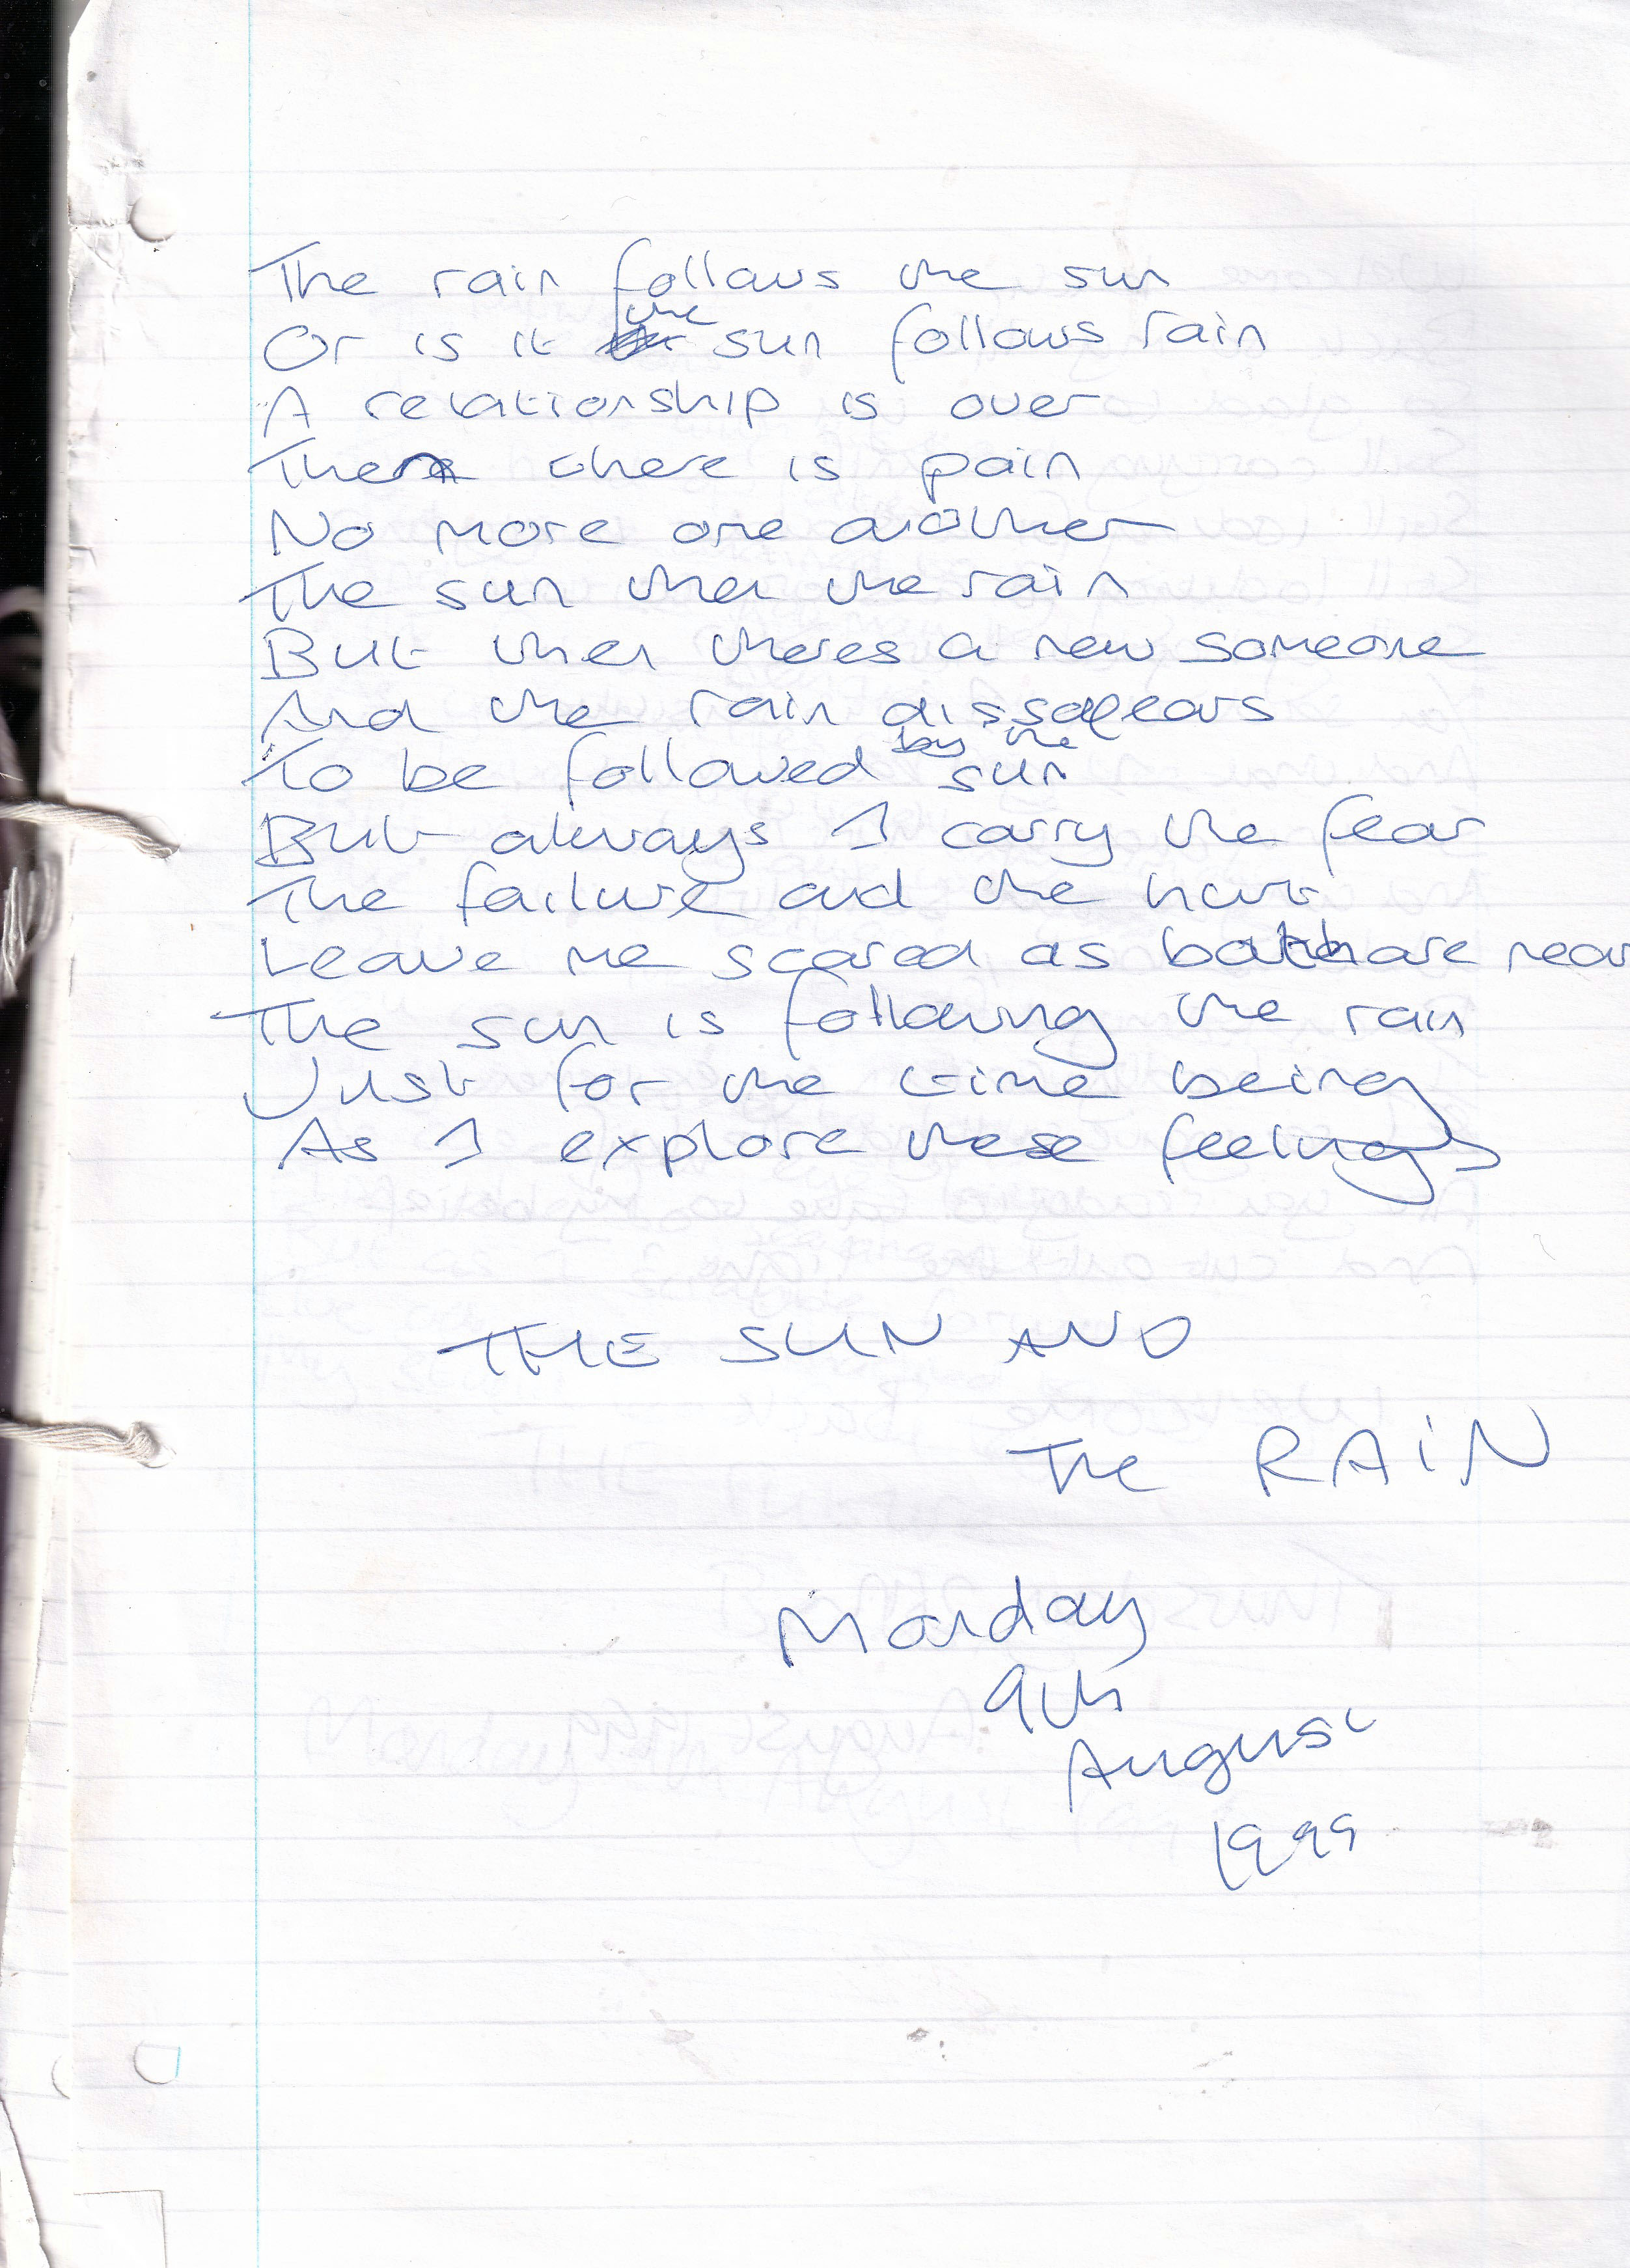 The rain follows the sun
Or is it the sun follows rain
A relationship is over
Then there is pain
No more one another
The sun then the rain
But then theres a new someone
And the rain dissapears
To be followed by the sun
But always I carry the fear
The failure and the hurt
Leave me scared as both are near
The sun is following the rain
Just for the time being
As I explore these feelings
THE SUN AND
The RAiN
Monday
9th
August
1999